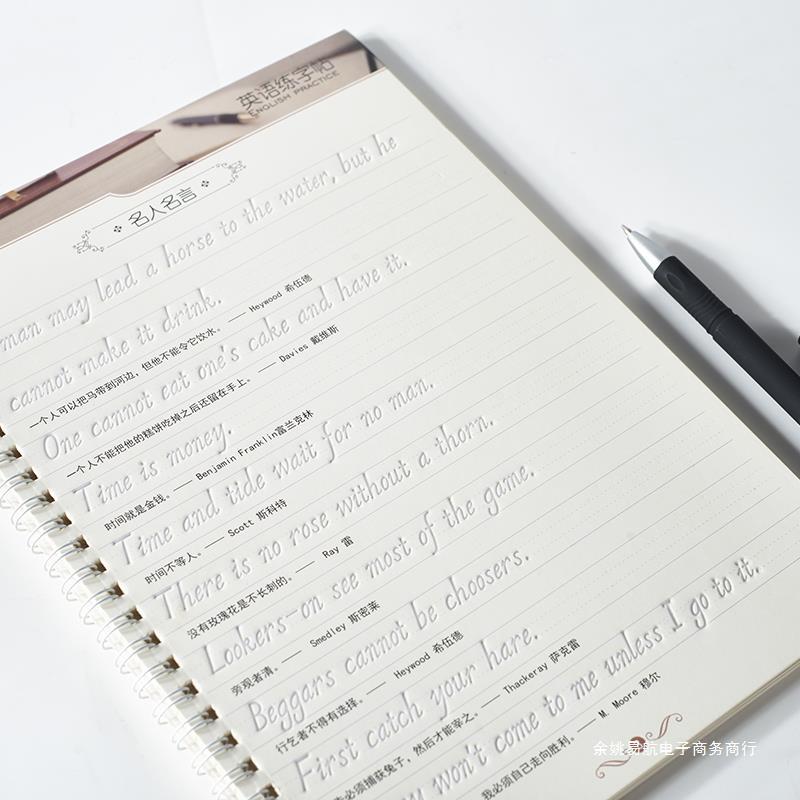 英语练字帖
ENGLISH PRACTICE
名人名言
man may lead a horse to the water, but he
cannot make it drink.
一个人可以把马带到河边，但他不能令它饮水。—— Heywood 希伍德
One cannot eat one's cake and have it.
一个人不能把他的糕饼吃掉之后还留在手上。—— Davies 戴维斯
Time is money.
时间就是金钱。—— Benjamin Franklin富兰克林
Time and tide wait for no man.
时间不等人。—— Scott 斯科特
There is no rose without a thorn.
没有玫瑰花是不长刺的。—— Ray 雷
Lookers-on see most of the game.
旁观者清。—— Smedley 斯密莱
Beggars cannot be choosers.
行乞者不得有选择。—— Heywood 希伍德
First catch your hare.
必须捕获兔子，然后才能宰之。—— Thackeray 萨克雷
won't come to me unless I go to it.
我必须自己走向胜利。—— M. Moore 穆尔
余姚易航电子商务商行